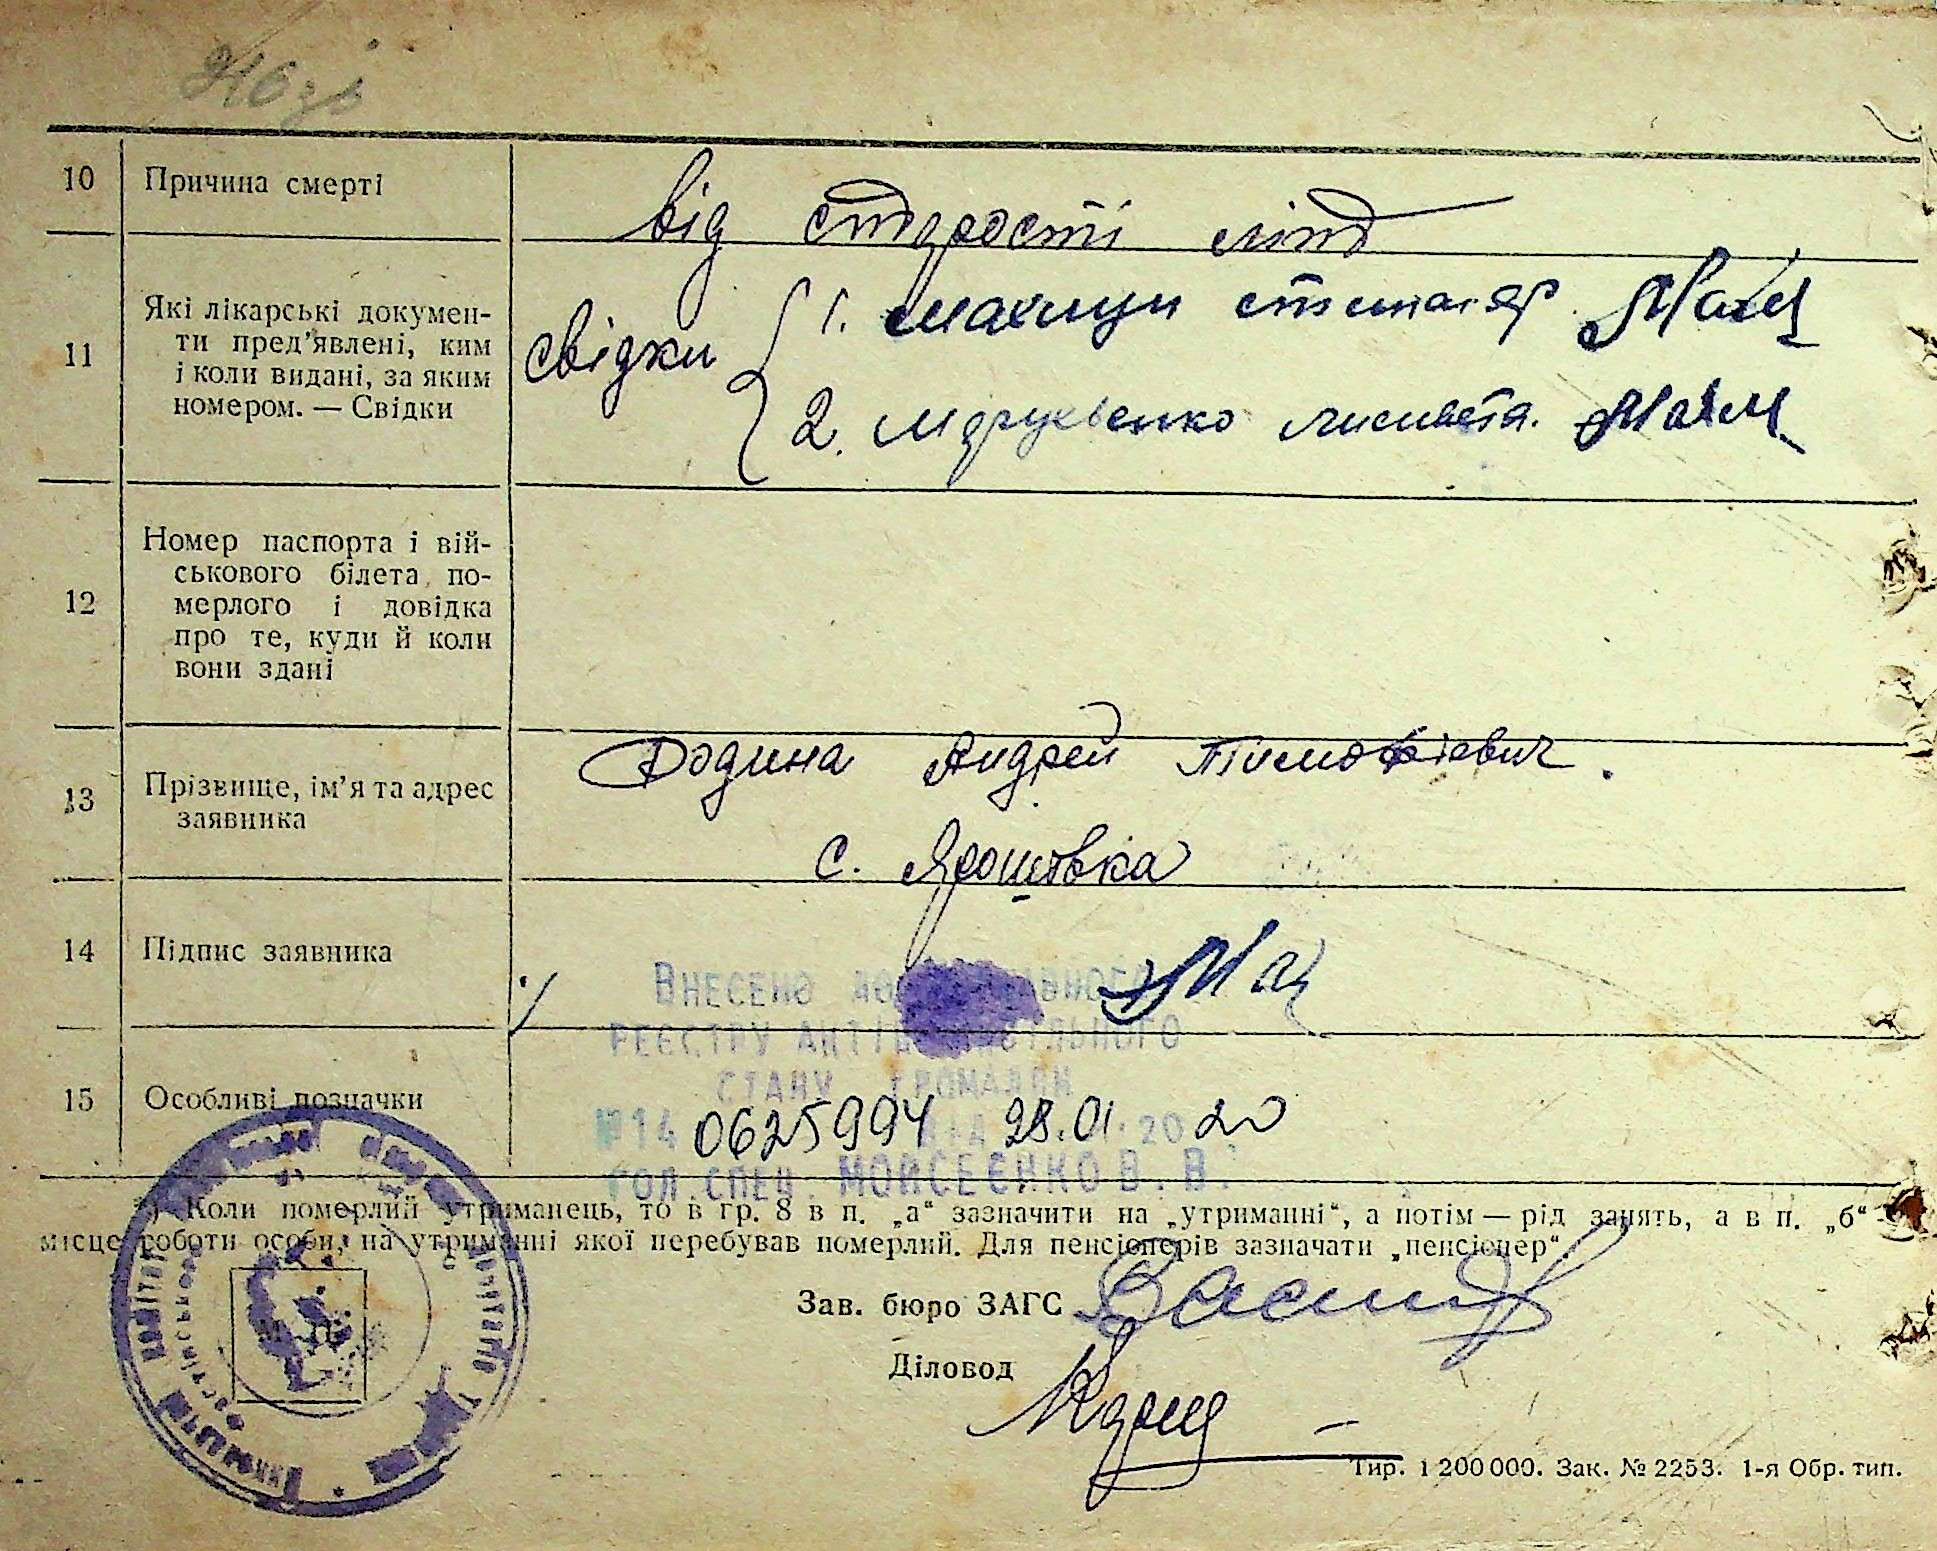 10 Причина смерті від старости літ
11 Які лікарські докумен-
ти пред’явлені, ким
і коли видані, за яким
номером. — Свідки
свідки
1.
2. лисивета.
12 Номер паспорта і вій-
ськового білета по-
мерлого і довідка
про те, куди й коли
вони здані
13 Прізвище, ім’я та адрес
заявника
Родина Андрей Тимофієвич.
с. Ярошовка
14 Підпис заявника
Внесено до
реєстру актів
стану громадян
№ 14 0625994 від 28.01.2020
гол. спец. Моисеєнко В. В.
15 Особливі позначки
*) Коли померлий утриманець, то в гр. 8 в п. „а“ зазначити на „утриманні“, а потім — рід занять, а в п. „б“
місце роботи особи, на утриманні якої перебував померлий. Для пенсіонерів зазначати „пенсіонер“
Зав. бюро ЗАГС
Діловод
Тир. 1 200 000. Зак. № 2253. 1-я Обр. тип.